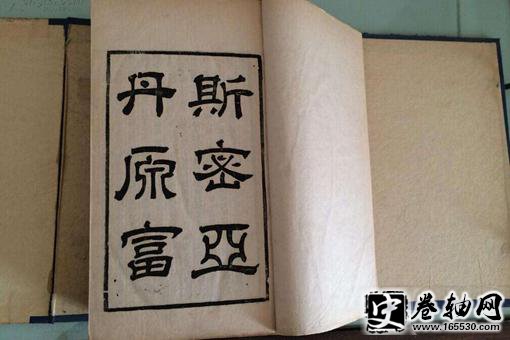 斯密亞
丹原富
史卷轴网
www.165530.com